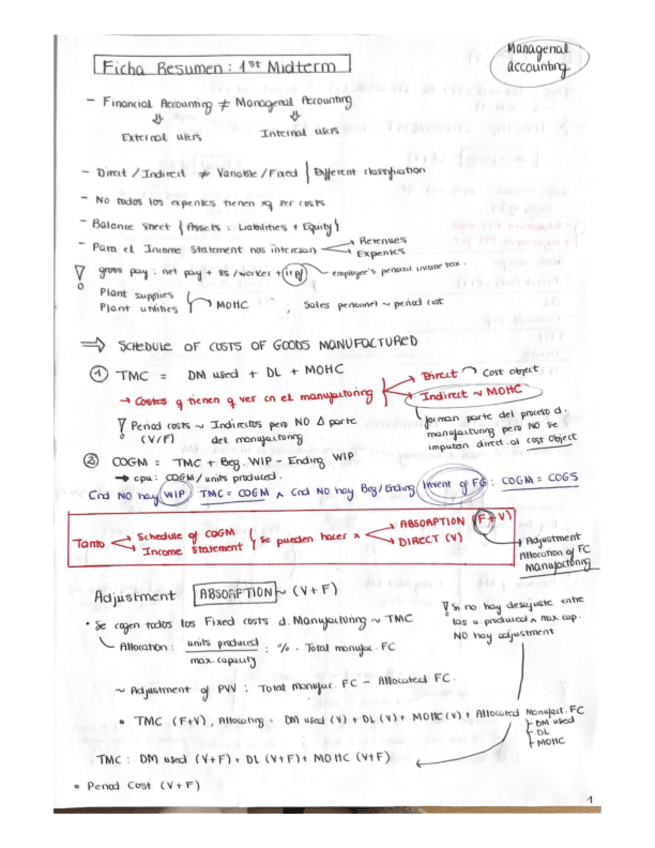 Managerial
accounting
Ficha Resumen : 1st Midterm
- Financial Accounting ≠ Managerial Accounting
⇓ ⇓
External users Internal users
- Direct / Indirect ≠ Variable / Fixed } Different classification
- No todos los expenses tienen xq ser costs
- Balance sheet { Assets = Liabilities + Equity }
- Para el Income Statement nos interesan → Revenues
→ Expenses
! gross pay : net pay + SS/worker + irpf ~ employee's personal income tax.
Plant supplies
Plant utilities } → MOHC ; Sales personnel ~ period cost
⇒ SCHEDULE OF COSTS OF GOODS MANUFACTURED
① TMC = DM used + DL + MOHC
→ Costes q tienen q ver cn el manufacturing → Direct → Cost object
→ Indirect ~ MOHC
forman parte del proceso d.
manufacturing pero NO se
imputan direct. al cost object
! Period costs ~ Indirectos pero NO Δ parte
(V/F) del manufacturing
② COGM = TMC + Beg. WIP - Ending WIP
→ cpu : COGM / units produced.
Cnd NO hay WIP TMC = COGM ∧ Cnd NO hay Beg/Ending Invent of FG : COGM = COGS
Tanto → Schedule of COGM
→ Income Statement } Se pueden hacer x → ABSORPTION (F+V)
→ DIRECT (V)
→ Adjustment
Allocation of FC
Manufactoring
Adjustment ABSORPTION ~ (V+F)
! Si no hay desajuste entre
las u. produced ∧ max cap.
NO hay adjustment
• Se cogen todos los Fixed costs d. Manufacturing ~ TMC
Allocation : units produced / max. capacity : % · Total manufac. FC
~ Adjustment of PVV : Total manufac. FC - Allocated FC.
• TMC (F+V), Allocating = DM used (V) + DL (V) + MOHC (V) + Allocated Manufact. FC
DM used
DL
MOHC
TMC : DM used (V+F) + DL (V+F) + MOHC (V+F)
• Period Cost (V+F)
1